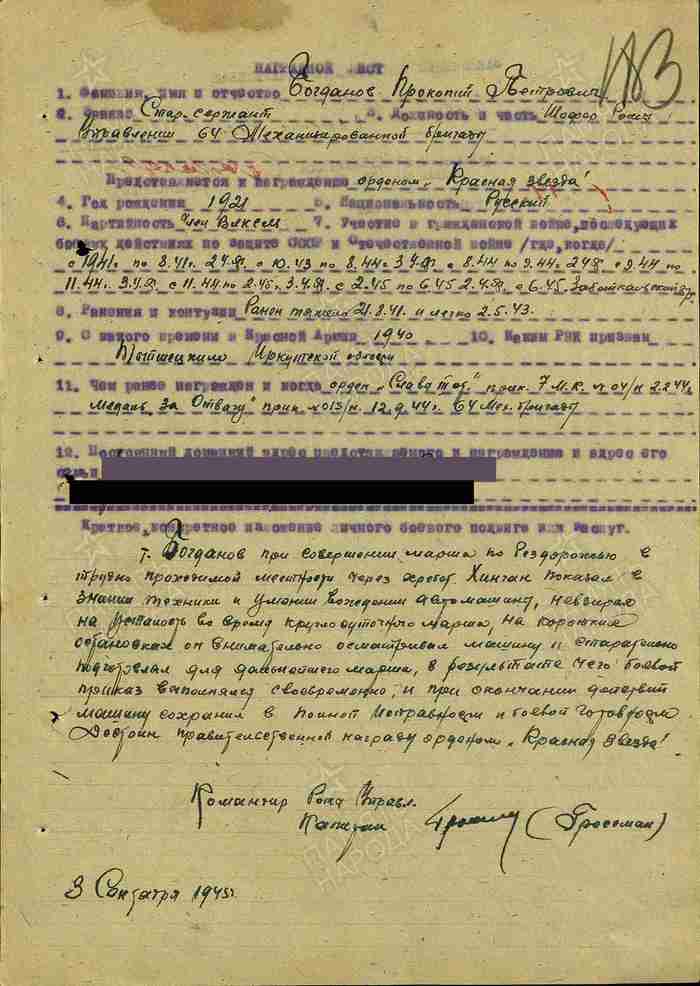 НАГРАДНОЙ ЛИСТ
113
1. Фамилия, имя и отчество Богданов Прокопий Петрович
2. Звание Стар-сержант 3. Должность и часть Шофер Роты
Управления 64 Механицированной бригады
Представляется к награждению орденом „Красная звезда"
4. Год рождения 1921 5. Национальность Русский
6. Партийность Член Влксм 7. Участие в гражданской войне, последующих
боевых действиях по защите СССР и Отечественной войне /где, когда/
с 1941г. по 8.41г. 2 УФ. с 10.43 по 8.44г 3 УФ с 8.44 по 9.44г 2 УФ с 9.44 по
11.44г. 3 УФ. с 11.44 по 2.45г. 3 УФ. с 2.45 по 6.45 2 УФ. с 6.45. Забайкальский
8. Ранения и контузии Ранен тяжело 21.8.41. и легко 2.5.43.
9. С какого времени в Красной Армии 1940 10. Каким РВК призван
Иркутской области
11. Чем ранее награжден и когда орден „Слава" прик. 7 М.К. № 04/н 2.2.44г.
медаль „За Отвагу" прик. № 013/н. 12.9.44г. 64 Мех. бригады
12. Постоянный домашний адрес представляемого к награждению и адрес его
семьи
Краткое, конкретное изложение личного боевого подвига или заслуг.
т. Богданов при совершении марша по бездорожью в
трудно проходимой местности через хребет Хинган показал в
знании техники и умении вождении автомашины, невзирая
на усталость во время круглосуточного марша, на коротких
остановках он внимательно осматривал машину и старательно
подготовлял для дальнейшего марша, в результате чего боевой
приказ выполнялся своевременно, и при окончании действий
машину сохранил в полной исправности и боевой готовности
Достоин правительственной награды орденом „Красная звезда"
Командир Роты Управл.
Капитан (Гроссман)
3 Сентября 1945г.
ПАМЯТЬ
НАРОДА